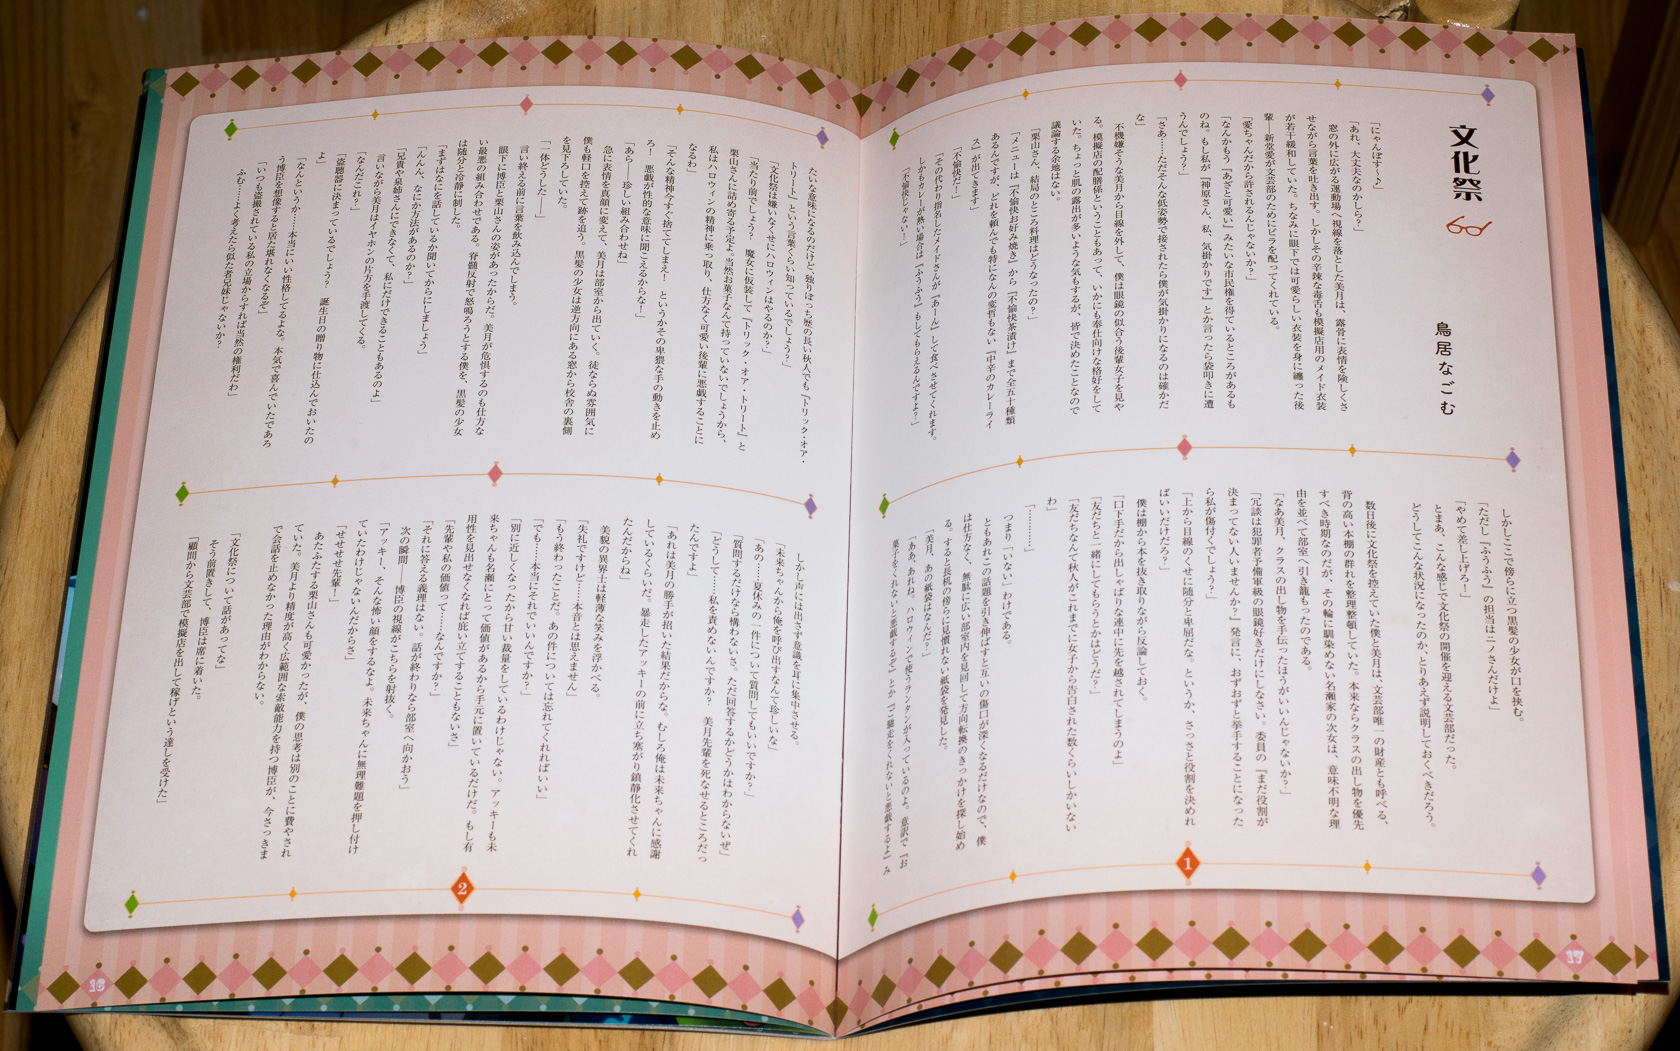 文化祭
鳥居なごむ
「にゃんぽす～♪」
「あれ、大丈夫なのかしら？」
窓の外に広がる運動場へ視線を落とした美月は、露骨に表情を険しくさ
せながら言葉を吐き出す。しかしその辛辣な毒舌も模擬店用のメイド衣装
が若干緩和していた。ちなみに眼下では可愛らしい衣装を身に纏った後
輩―新堂愛が文芸部のためにビラを配ってくれている。
「愛ちゃんだから許されるんじゃないか？」
「なんかもう『あざと可愛い』みたいな市民権を得ているところがあるも
のね。もし私が『神原さん、私、気掛かりです』とか言ったら袋叩きに遭
うんでしょう？」
「さあ……ただそんな低姿勢で接されたら僕が気掛かりになるのは確かだ
な」
不機嫌そうな美月から目線を外して、僕は眼鏡の似合う後輩女子を見や
る。模擬店の配膳係ということもあって、いかにも奉仕向けな格好をして
いた。ちょっと肌の露出が多いような気もするが、皆で決めたことなので
議論する余地はない。
「栗山さん、結局のところ料理はどうなったの？」
「メニューは『不愉快お好み焼き』から『不愉快茶漬け』まで全五十種類
あるんですが、どれを頼んでも特になんの変哲もない『中辛のカレーライ
ス』が出てきます」
「不愉快だ！」
「その代わり指名したメイドさんが『あーん』して食べさせてくれます。
しかもカレーが熱い場合は『ふうふう』もしてもらえるんですよ？」
「不愉快じゃない！」
しかしここで傍らに立つ黒髪の少女が口を挟む。
「ただし『ふうふう』の担当はニノさんだけよ」
「やめて差し上げろ！」
とまあ、こんな感じで文化祭の開催を迎える文芸部だった。
どうしてこんな状況になったのか、とりあえず説明しておくべきだろう。
数日後に文化祭を控えていた僕と美月は、文芸部唯一の財産とも呼べる、
背の高い本棚の群れを整理整頓していた。本来ならクラスの出し物を優先
すべき時期なのだが、その輪に馴染めない名瀬家の次女は、意味不明な理
由を並べて部室へ引き籠もったのである。
「なあ美月、クラスの出し物を手伝ったほうがいいんじゃないか？」
「冗談は犯罪者予備軍級の眼鏡好きだけにしなさい。委員の『まだ役割が
決まってない人いませんか？』発言に、おずおずと挙手することになった
ら私が傷付くでしょう？」
「上から目線のくせに随分と卑屈だな。というか、さっさと役割を決めれ
ばいいだけだろ？」
僕は棚から本を抜き取りながら反論しておく。
「口下手だから出しゃばりな連中に先を越されてしまうのよ」
「友だちと一緒にしてもらうとかはどうだ？」
「友だちなんて秋人がこれまでに女子から告白された数くらいしかいない
わ」
「…………」
つまり「いない」わけである。
ともあれこの話題を引き伸ばすと互いの傷口が深くなるだけなので、僕
は仕方なく、無駄に広い部室内を見回して方向転換のきっかけを探し始め
る。すると長机の傍らに見慣れない紙袋を発見した。
「美月、あの紙袋はなんだ？」
「ああ、あれね。ハロウィンで使うランタンが入っているのよ。意訳で『お
菓子をくれないと悪戯するぞ』とか『ご馳走をくれないと悪戯するよ』み
1
17
たいな意味になるのだけど、独りぼっち歴の長い秋人でも『トリック・オア・
トリート』という言葉くらい知っているでしょう？」
「文化祭は嫌いなくせにハロウィンはやるのか？」
「当たり前でしょう？　魔女に仮装して『トリック・オア・トリート』と
栗山さんに詰め寄る予定よ。当然お菓子なんて持っていないでしょうから、
私はハロウィンの精神に乗っ取り、仕方なく可愛い後輩に悪戯することに
なるわ」
「そんな精神今すぐ捨ててしまえ！　というかその卑猥な手の動きを止め
ろ！　悪戯が性的な意味に聞こえるからな！」
「あら――珍しい組み合わせね」
急に表情を真顔に変えて、美月は部室から出ていく。徒ならぬ雰囲気に
僕も軽口を控えて跡を追う。黒髪の少女は逆方向にある窓から校舎の裏側
を見下ろしていた。
「一体どうした――」
言い終える前に言葉を飲み込んでしまう。
眼下に博臣と栗山さんの姿があったからだ。美月が危惧するのも仕方な
い最悪の組み合わせである。脊髄反射で怒鳴ろうとする僕を、黒髪の少女
は随分と冷静に制した。
「まずはなにを話しているか聞いてからにしましょう」
「んんん、なにか方法があるのか？」
「兄貴や泉姉さんにできなくて、私にだけできることもあるのよ」
言いながら美月はイヤホンの片方を手渡してくる。
「なんだこれ？」
「盗聴器に決まっているでしょう？　誕生日の贈り物に仕込んでおいたの
よ」
「なんというか……本当にいい性格してるよな。本気で喜んでいたであろ
う博臣を想像すると居た堪れなくなるぞ」
「いつも盗撮されている私の立場からすれば当然の権利だわ」
ふむ……よく考えたら似た者兄妹じゃないか？
しかし声には出さず意識を耳に集中させる。
「未来ちゃんから俺を呼び出すなんて珍しいな」
「あの……夏休みの一件について質問してもいいですか？」
「質問するだけなら構わないさ。ただ回答するかどうかはわからないぜ」
「どうして……私を責めないんですか？　美月先輩を死なせるところだっ
たんですよ」
「あれは美月の勝手が招いた結果だからな。むしろ俺は未来ちゃんに感謝
しているくらいだ。暴走したアッキーの前に立ち塞がり鎮静化させてくれ
たんだからね」
美貌の異界士は軽薄な笑みを浮かべる。
「失礼ですけど……本音とは思えません」
「もう終わったことだ。あの件については忘れてくれればいい」
「でも……本当にそれでいいんですか？」
「別に近しくなったから甘い裁量をしているわけじゃない。アッキーも未
来ちゃんも名瀬にとって価値があるから手元に置いているだけだ。もし有
用性を見出せなくなれば庇い立てすることもないさ」
「先輩や私の価値って……なんですか？」
「それに答える義理はない。話が終わりなら部室へ向かおう」
次の瞬間――博臣の視線がこちらを射抜く。
「アッキー、そんな怖い顔をするなよ。未来ちゃんに無理難題を押し付け
ていたわけじゃないんだからさ」
「せせせせ先輩！」
あたふたする栗山さんも可愛かったが、僕の思考は別のことに費やされ
ていた。美月より精度が高く広範囲な索敵能力を持つ博臣が、今さっきま
で会話を止めなかった理由がわからない。
「文化祭について話があってな」
そう前置きして、博臣は席に着いた。
「顧問から文芸部で模擬店を出して稼げという達しを受けた」
2
16